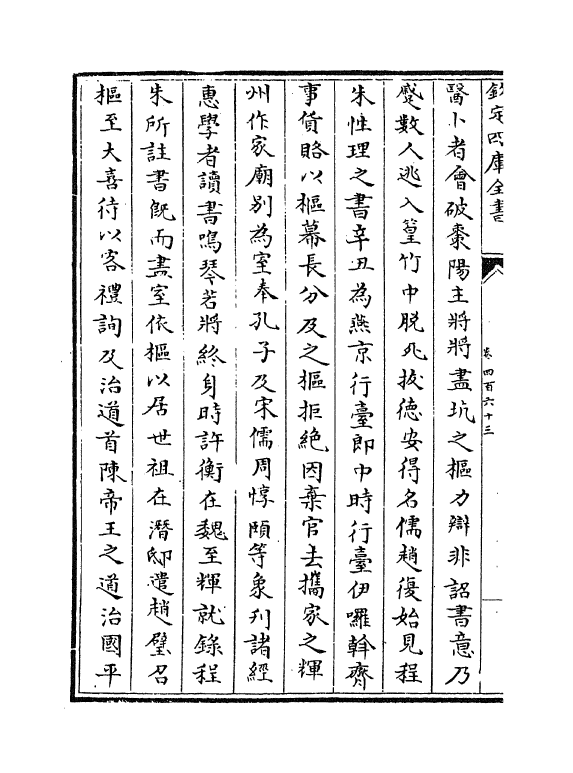 欽定四庫全書
卷四百六十三
醫卜者會破棗陽主將將盡坑之樞力辯非詔書意乃
蹙數人逃入篁竹中脱死拔德安得名儒趙復始見程
朱性理之書辛丑為燕京行臺郎中時行臺伊囉斡齊
事貨賂以樞幕長分及之樞拒絶因棄官去攜家之輝
州作家廟别為室奉孔子及宋儒周惇頤等象刋諸經
惠學者讀書鳴琴若將終身時許衡在魏至輝就錄程
朱所註書旣而盡室依樞以居世祖在潛邸遣趙璧召
樞至大喜待以客禮詢及治道首陳帝王之道治國平